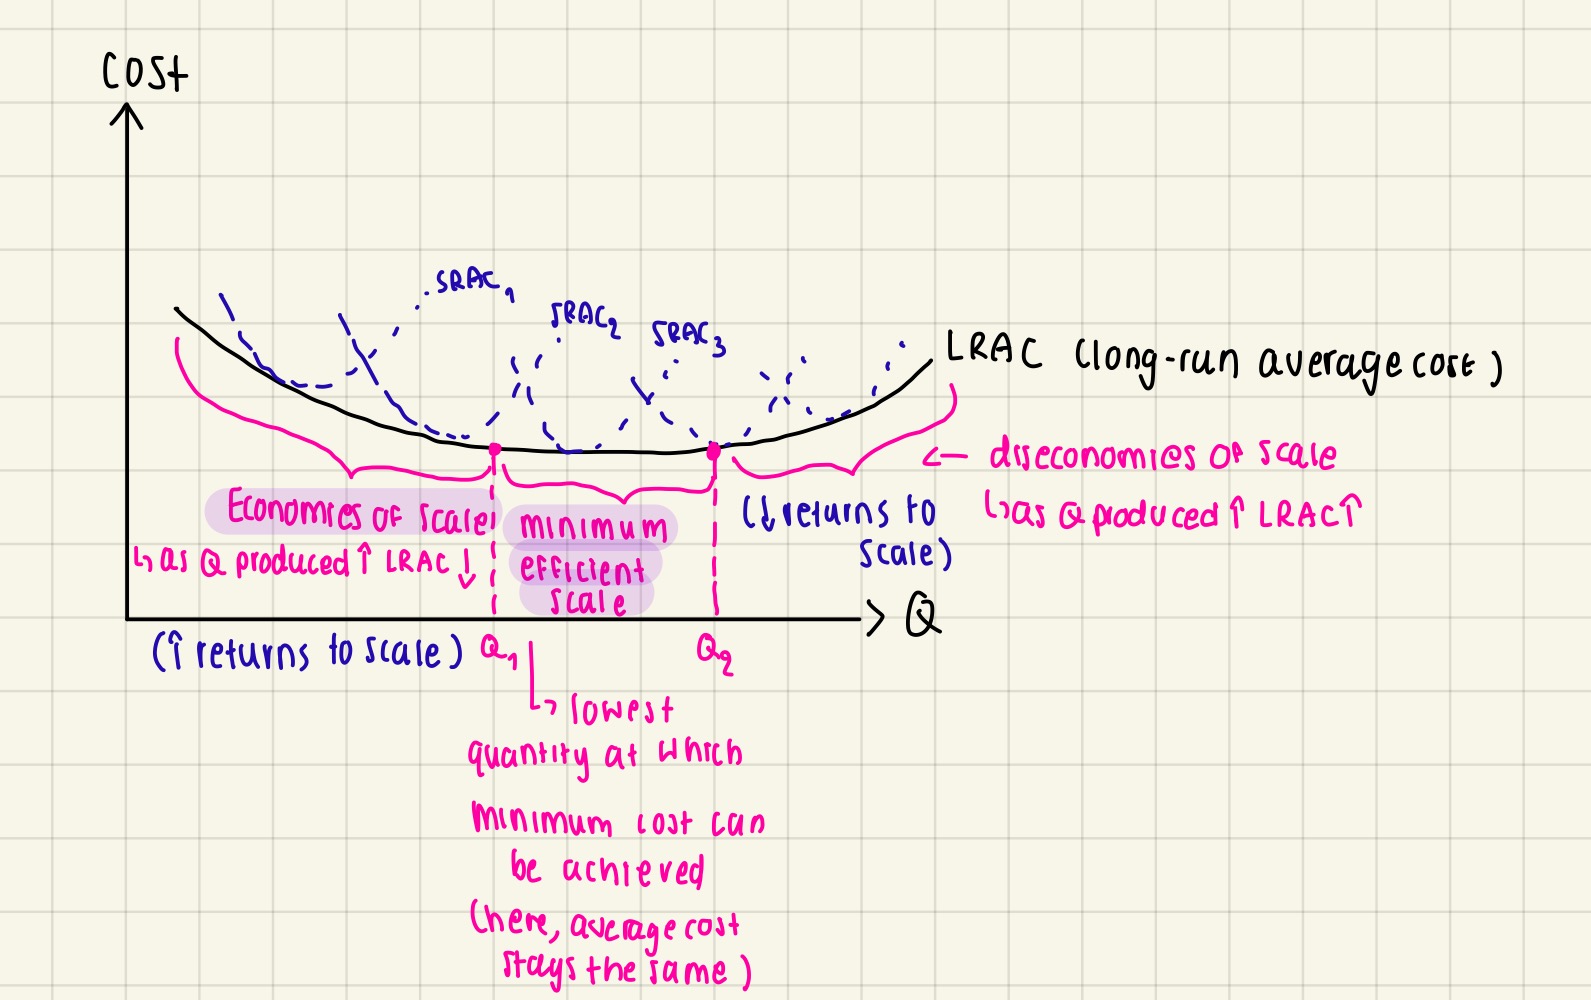 COST
SRAC1
SRAC2
SRAC3
LRAC (long-run average cost)
← diseconomies of scale
↳ as Q produced ↑ LRAC ↑
(↓ returns to
scale)
Economies of scale
↳ as Q produced ↑ LRAC ↓
minimum
efficient
scale
Q
(↑ returns to scale)
Q1
Q2
↳ lowest
quantity at which
minimum cost can
be achieved
(here, average cost
stays the same)